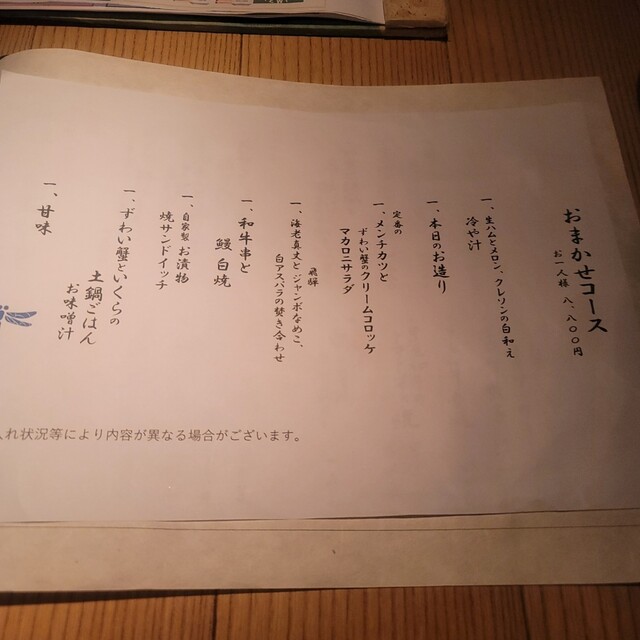 おまかせコース
お一人様 八、八〇〇円
一、生ハムとメロン、クレソンの白和え
冷や汁
一、本日のお造り
定番の
一、メンチカツと
ずわい蟹のクリームコロッケ
マカロニサラダ
飛騨
一、海老真丈とジャンボなめこ、
白アスパラの焚き合わせ
一、和牛串と
鰻白焼
一、自家製お漬物
焼サンドイッチ
一、ずわい蟹といくらの
土鍋ごはん
お味噌汁
一、甘味
入れ状況等により内容が異なる場合がございます。